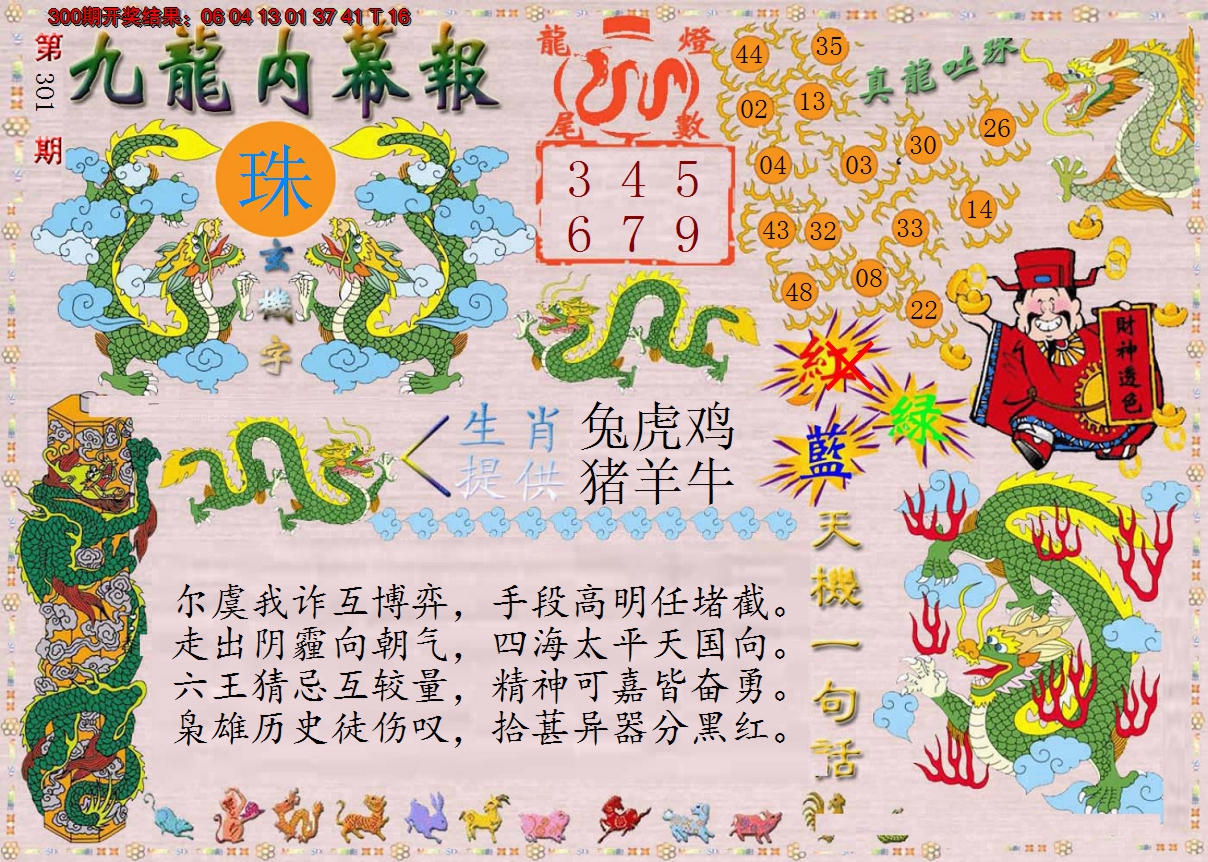 300期开奖结果：06 04 13 01 37 41 T 16
第301期
九龍内幕報
珠
玄機字
龍燈
尾數
3 4 5
6 7 9
真龍吐珠
44 35
02 13
30 26
04 03
14
43 32 33
48 08
22
紅
綠
藍
財神透色
生肖
提供
兔虎鸡
猪羊牛
天機一句话
尔虞我诈互博弈，手段高明任堵截。
走出阴霾向朝气，四海太平天国向。
六王猜忌互较量，精神可嘉皆奋勇。
枭雄历史徒伤叹，拾甚异器分黑红。